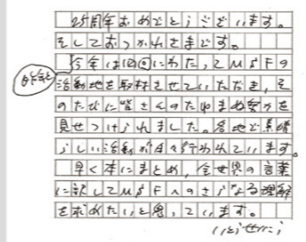 25周年おめでとうございます。
そしておつかれさまです。
昨年
今年は10回にわたってMSFの
活動地を取材させていただき、そ
のたびに皆さんのたゆまぬ努力を
見せつけられました。各地で素晴
らしい活動が日々行われています。
早く本にまとめ、全世界の言葉
に訳してMSFへのさらなる理解
を求めたいと思っています。
いとうせいこう